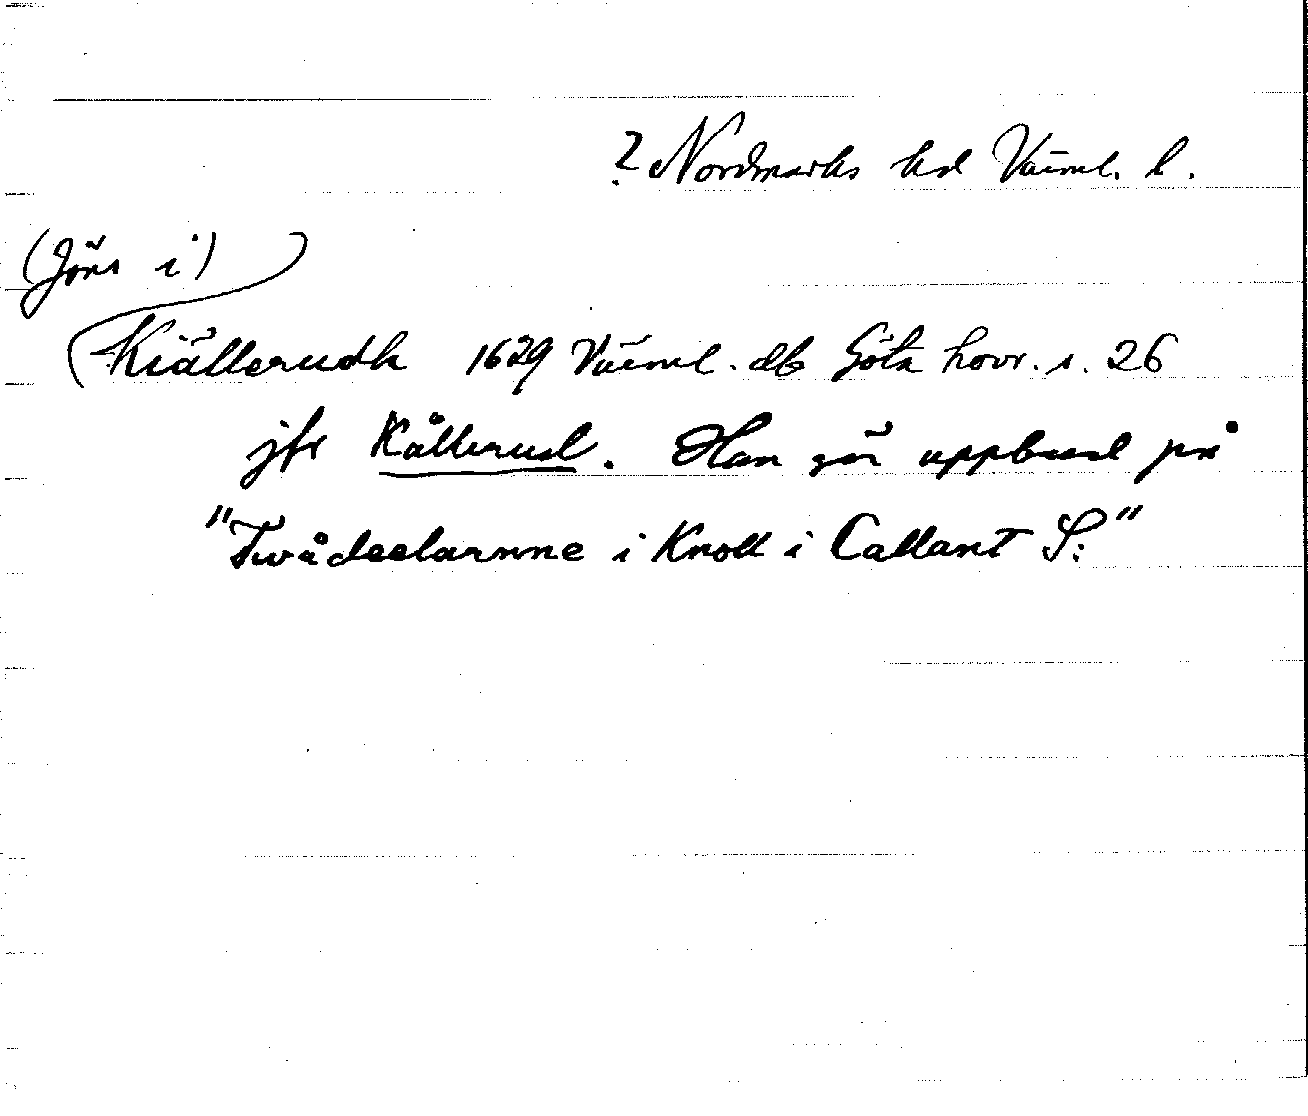 ? Nordmarks hd Värml. l.
(Jöns i)
Kiällerudh 1629 Värml. db Göta hovr. s. 26
jfr Källerud. Han gör uppbud på
"Twådeelarnne i Knoll i Callant S:"